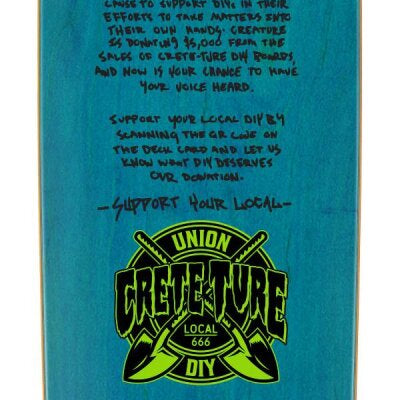 CAUSE TO SUPPORT DIYs IN THEIR
EFFORTS TO TAKE MATTERS INTO
THEIR OWN HANDS. CREATURE
IS DONATING $5,000 FROM THE
SALES OF CRETE-TURE DIY BOARDS,
AND NOW IS YOUR CHANCE TO HAVE
YOUR VOICE HEARD.
SUPPORT YOUR LOCAL DIY BY
SCANNING THE QR CODE ON
THE DECK CARD AND LET US
KNOW WHAT DIY DESERVES
OUR DONATION.
-SUPPORT YOUR LOCAL-
UNION
CRETE-TURE
LOCAL
666
DIY